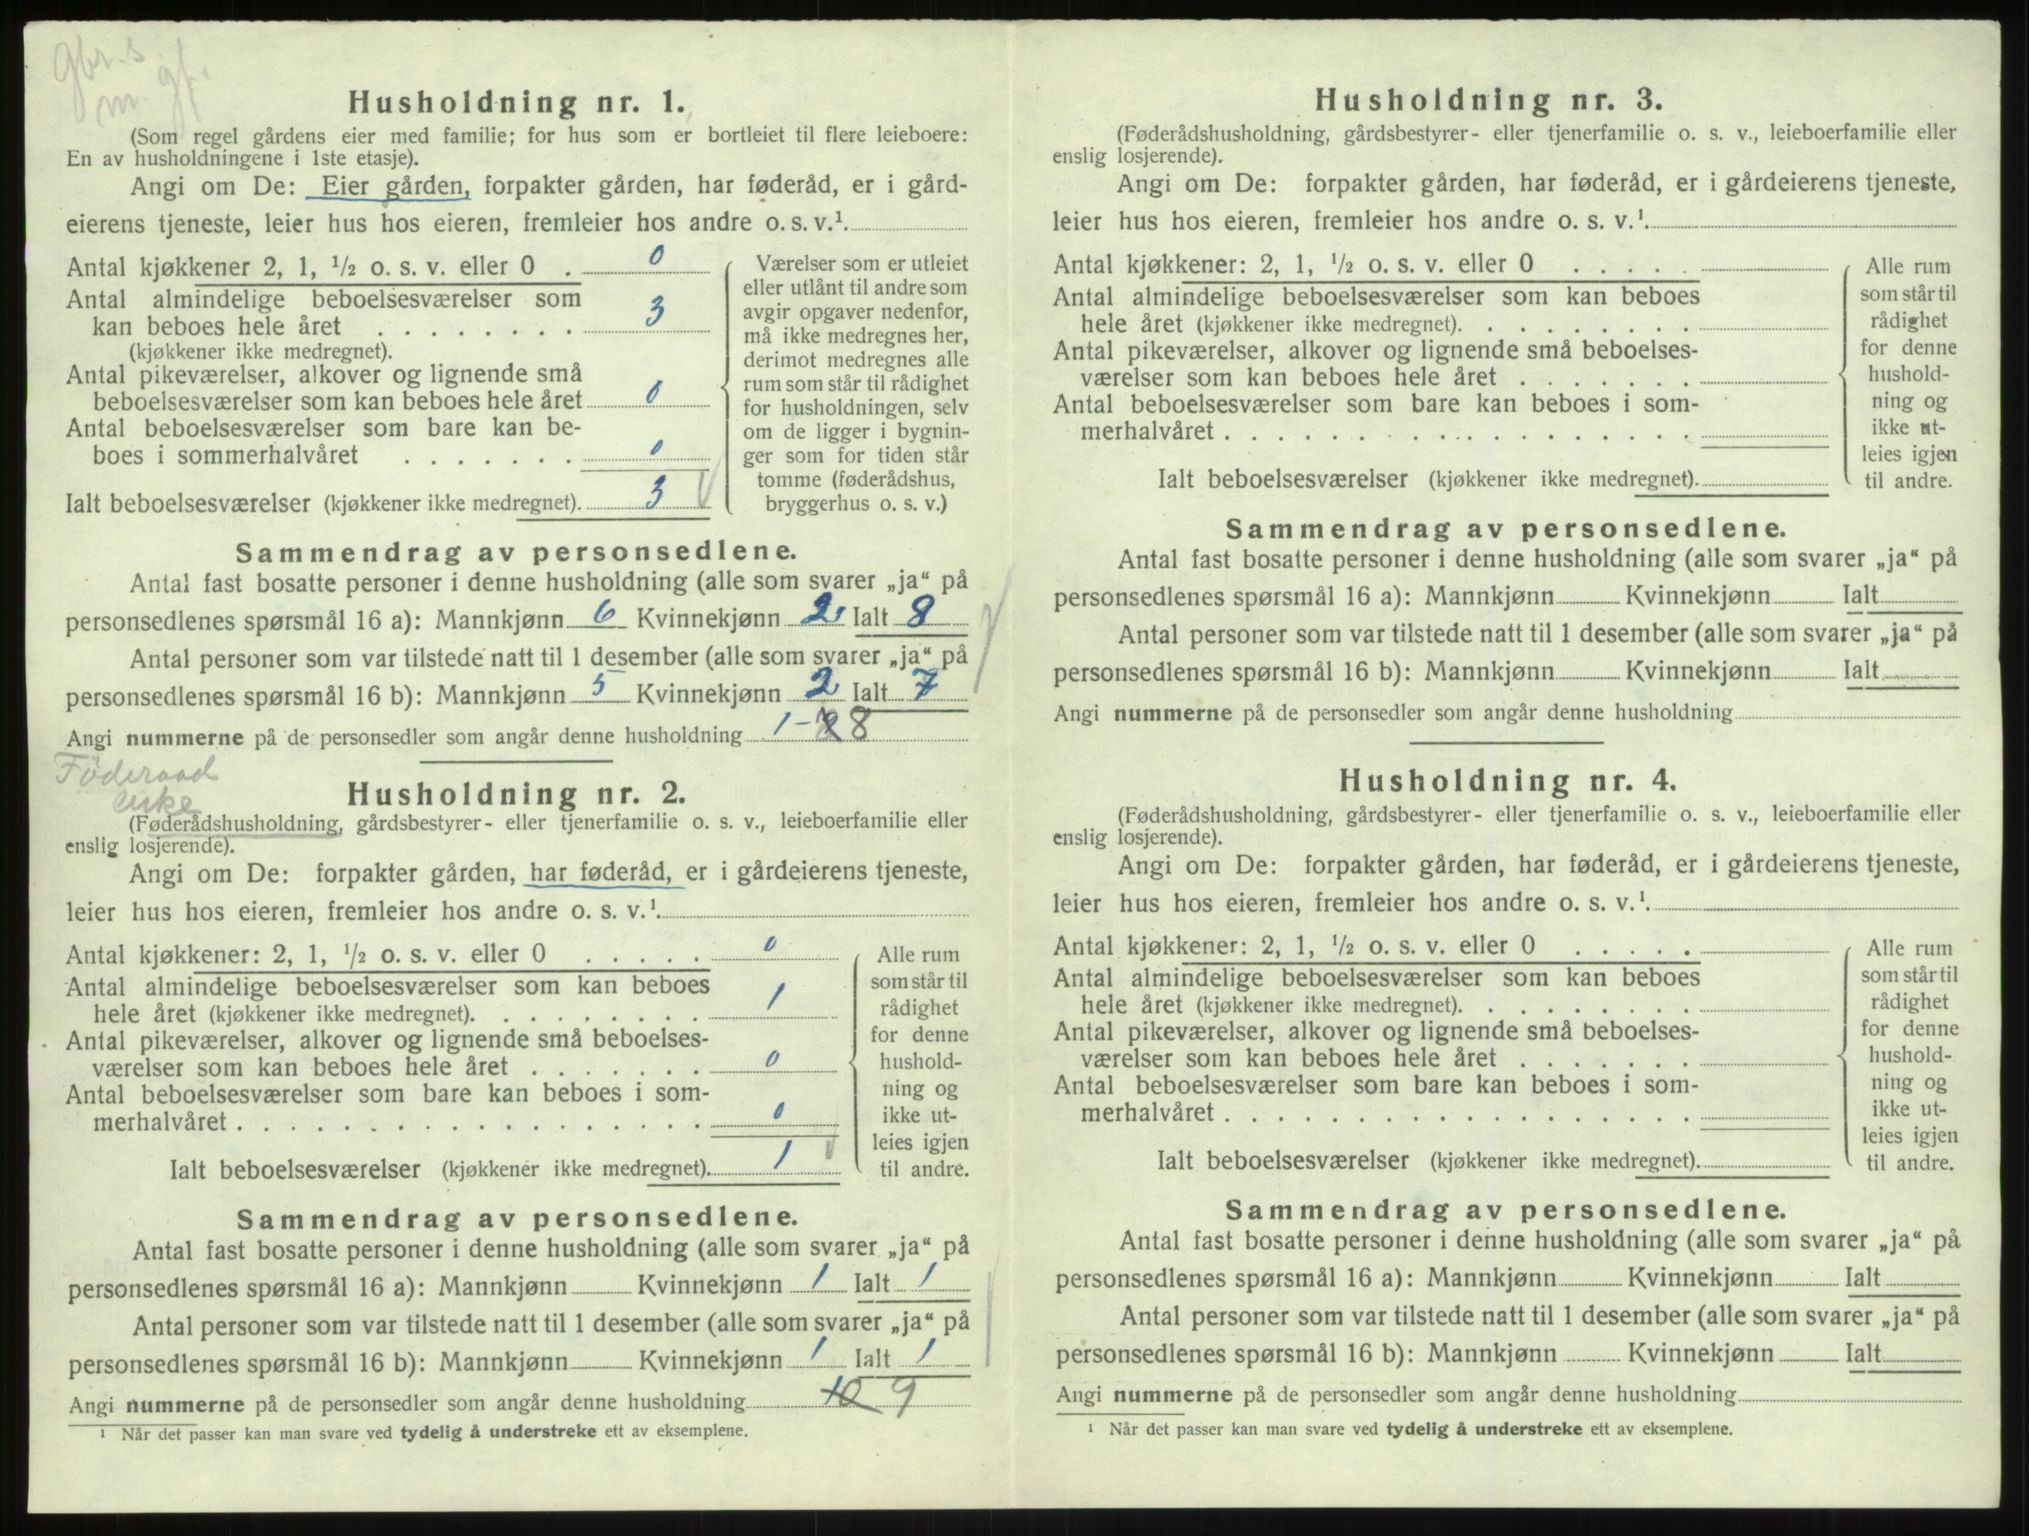 gbr.s
m gf.
Husholdning nr. 1.
(Som regel gårdens eier med familie; for hus som er bortleiet til flere leieboere:
En av husholdningene i 1ste etasje).
Angi om De: Eier gården, forpakter gården, har føderåd, er i gård-
eierens tjeneste, leier hus hos eieren, fremleier hos andre o. s. v.¹
Antal kjøkkener 2, 1, ½ o. s. v. eller 0 . 0
Antal almindelige beboelsesværelser som
kan beboes hele året . . . . . . . . 3
(kjøkkener ikke medregnet).
Antal pikeværelser, alkover og lignende små
beboelsesværelser som kan beboes hele året 0
Antal beboelsesværelser som bare kan be-
boes i sommerhalvåret . . . . . . . 0
Ialt beboelsesværelser (kjøkkener ikke medregnet). 3
Værelser som er utleiet
eller utlånt til andre som
avgir opgaver nedenfor,
må ikke medregnes her,
derimot medregnes alle
rum som står til rådighet
for husholdningen, selv
om de ligger i bygnin-
ger som for tiden står
tomme (føderådshus,
bryggerhus o. s. v.)
Sammendrag av personsedlene.
Antal fast bosatte personer i denne husholdning (alle som svarer „ja“ på
personsedlenes spørsmål 16 a): Mannkjønn 6 Kvinnekjønn 2 Ialt 8
Antal personer som var tilstede natt til 1 desember (alle som svarer „ja“ på
personsedlenes spørsmål 16 b): Mannkjønn 5 Kvinnekjønn 2 Ialt 7
Angi nummerne på de personsedler som angår denne husholdning 1- 8
Føderaad
enke
Husholdning nr. 2.
(Føderådshusholdning, gårdsbestyrer- eller tjenerfamilie o. s. v., leieboerfamilie eller
enslig losjerende).
Angi om De: forpakter gården, har føderåd, er i gårdeierens tjeneste,
leier hus hos eieren, fremleier hos andre o. s. v.¹
Antal kjøkkener: 2, 1, ½ o. s. v. eller 0 . . . . . 0
Antal almindelige beboelsesværelser som kan beboes
hele året (kjøkkener ikke medregnet). . . . . . . . . 1
Antal pikeværelser, alkover og lignende små beboelses-
værelser som kan beboes hele året . . . . . . . 0
Antal beboelsesværelser som bare kan beboes i som-
merhalvåret . . . . . . . . . . . . . . . . . . 0
Ialt beboelsesværelser (kjøkkener ikke medregnet). 1
Alle rum
som står til
rådighet
for denne
hushold-
ning og
ikke ut-
leies igjen
til andre.
Sammendrag av personsedlene.
Antal fast bosatte personer i denne husholdning (alle som svarer „ja“ på
personsedlenes spørsmål 16 a): Mannkjønn Kvinnekjønn 1 Ialt 1
Antal personer som var tilstede natt til 1 desember (alle som svarer „ja“ på
personsedlenes spørsmål 16 b): Mannkjønn Kvinnekjønn 1 Ialt 1
Angi nummerne på de personsedler som angår denne husholdning 10 9
¹ Når det passer kan man svare ved tydelig å understreke ett av eksemplene.
Husholdning nr. 3.
(Føderådshusholdning, gårdsbestyrer- eller tjenerfamilie o. s. v., leieboerfamilie eller
enslig losjerende).
Angi om De: forpakter gården, har føderåd, er i gårdeierens tjeneste,
leier hus hos eieren, fremleier hos andre o. s. v.¹
Antal kjøkkener: 2, 1, ½ o. s. v. eller 0 . . . . .
Antal almindelige beboelsesværelser som kan beboes
hele året (kjøkkener ikke medregnet). . . . . . . . .
Antal pikeværelser, alkover og lignende små beboelses-
værelser som kan beboes hele året . . . . . . .
Antal beboelsesværelser som bare kan beboes i som-
merhalvåret . . . . . . . . . . . . . . . . . .
Ialt beboelsesværelser (kjøkkener ikke medregnet).
Alle rum
som står til
rådighet
for denne
hushold-
ning og
ikke ut-
leies igjen
til andre.
Sammendrag av personsedlene.
Antal fast bosatte personer i denne husholdning (alle som svarer „ja“ på
personsedlenes spørsmål 16 a): Mannkjønn Kvinnekjønn Ialt
Antal personer som var tilstede natt til 1 desember (alle som svarer „ja“ på
personsedlenes spørsmål 16 b): Mannkjønn Kvinnekjønn Ialt
Angi nummerne på de personsedler som angår denne husholdning
Husholdning nr. 4.
(Føderådshusholdning, gårdsbestyrer- eller tjenerfamilie o. s. v., leieboerfamilie eller
enslig losjerende).
Angi om De: forpakter gården, har føderåd, er i gårdeierens tjeneste,
leier hus hos eieren, fremleier hos andre o. s. v.¹
Antal kjøkkener: 2, 1, ½ o. s. v. eller 0 . . . . .
Antal almindelige beboelsesværelser som kan beboes
hele året (kjøkkener ikke medregnet). . . . . . . . .
Antal pikeværelser, alkover og lignende små beboelses-
værelser som kan beboes hele året . . . . . . .
Antal beboelsesværelser som bare kan beboes i som-
merhalvåret . . . . . . . . . . . . . . . . . .
Ialt beboelsesværelser (kjøkkener ikke medregnet).
Alle rum
som står til
rådighet
for denne
hushold-
ning og
ikke ut-
leies igjen
til andre.
Sammendrag av personsedlene.
Antal fast bosatte personer i denne husholdning (alle som svarer „ja“ på
personsedlenes spørsmål 16 a): Mannkjønn Kvinnekjønn Ialt
Antal personer som var tilstede natt til 1 desember (alle som svarer „ja“ på
personsedlenes spørsmål 16 b): Mannkjønn Kvinnekjønn Ialt
Angi nummerne på de personsedler som angår denne husholdning
¹ Når det passer kan man svare ved tydelig å understreke ett av eksemplene.